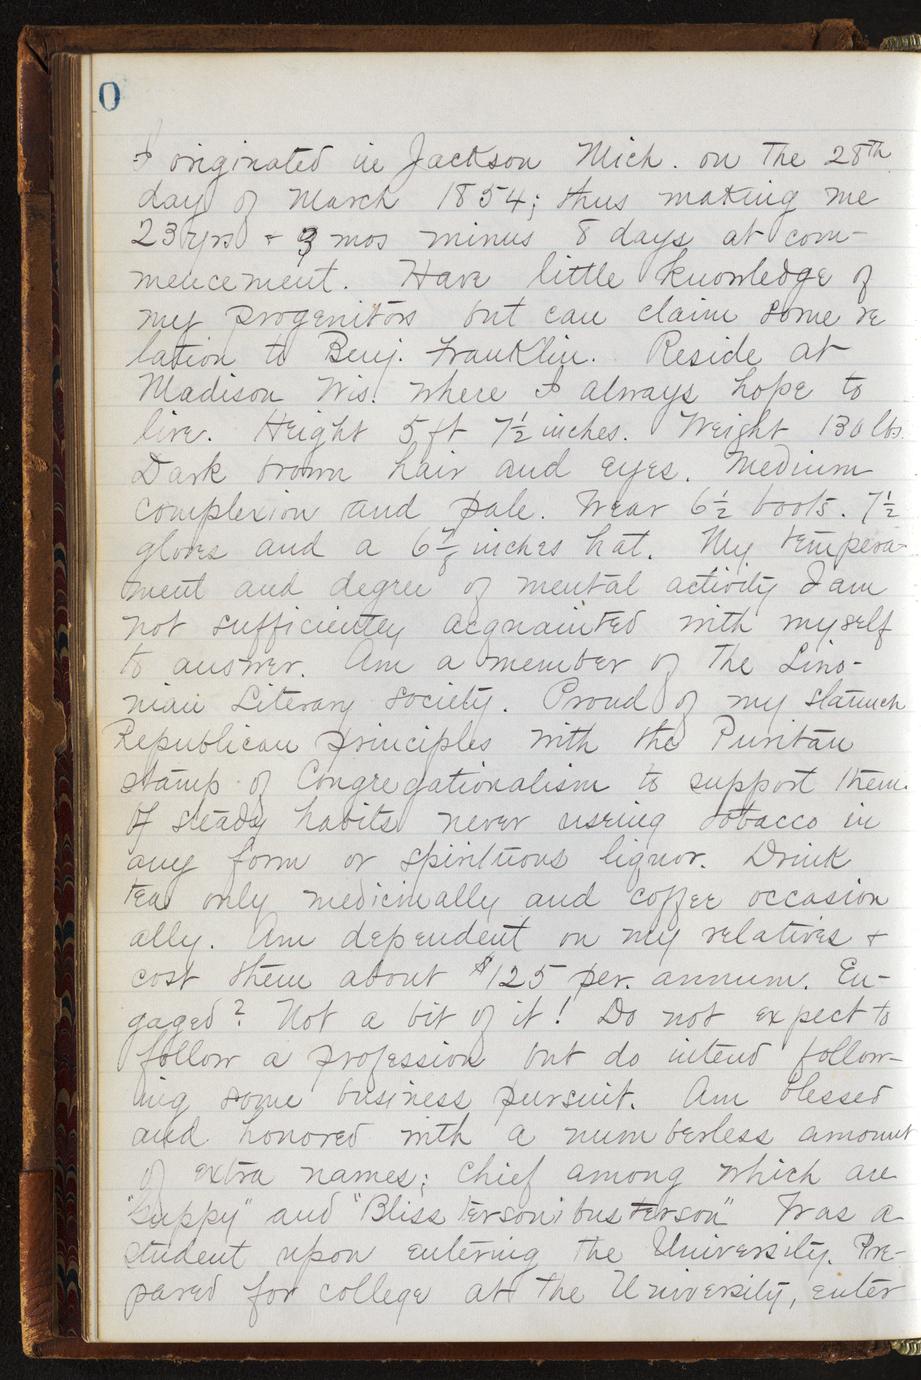 0
I originated in Jackson Mich. on the 28th
day of March 1854; thus making me
23 yrs + 3 mos minus 8 days at com-
mencement. Have little knowledge of
my progenitors but can claim some re
lation to Benj. Franklin. Reside at
Madison Wis. where I always hope to
live. Height 5 ft 7½ inches. Weight 130 lbs.
Dark brown hair and eyes. Medium
complexion and pale. Wear 6½ boots. 7½
gloves and a 6⅞ inches hat. My tempera-
ment and degree of mental activity I am
not sufficiently acquainted with myself
to answer. Am a member of the Lino-
nian Literary Society. Proud of my staunch
Republican principles with the Puritan
stamp of Congregationalism to support them.
Of steady habits never using tobacco in
any form or spirituous liquor. Drink
tea only medicinally and coffee occasion
ally. Am dependent on my relatives +
cost them about $125 per. annum. En-
gaged? Not a bit of it! Do not expect to
follow a profession but do intend follow-
ing some business pursuit. Am blessed
and honored with a numberless amount
of extra names; chief among which are
"Guppy" and "Bliss tersonibusterson" Was a
student upon entering the University. Pre-
pared for college at the University, enter